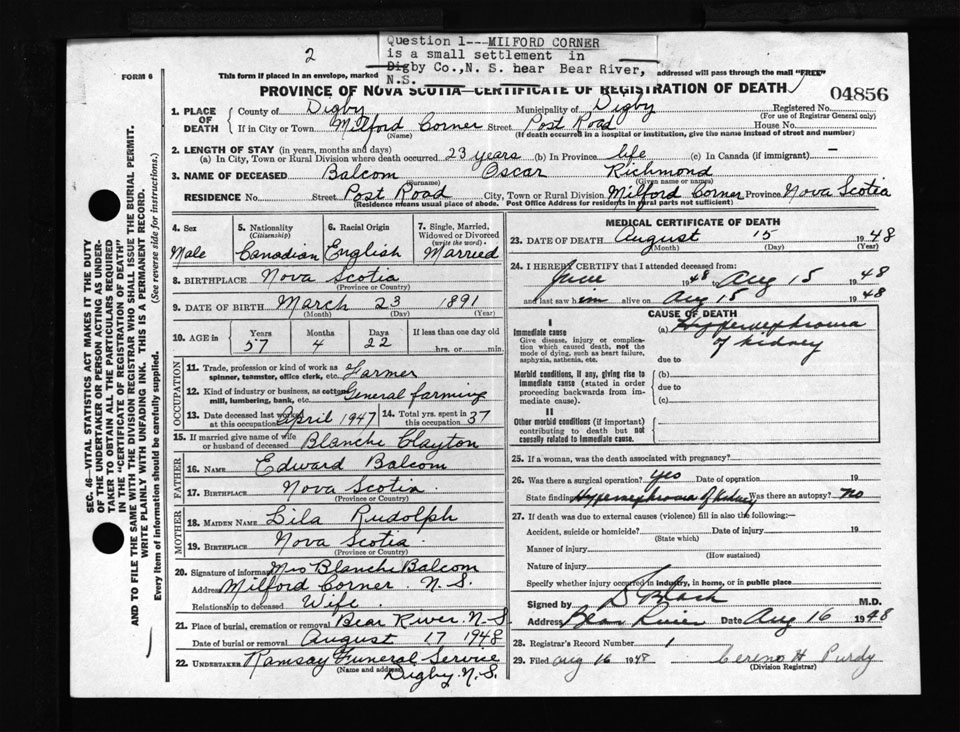 2
Question 1---MILFORD CORNER
is a small settlement in
Digby Co.,N. S. near Bear River,
N.S.
FORM 6
This form if placed in an envelope, marked addressed will pass through the mail "FREE"
PROVINCE OF NOVA SCOTIA—CERTIFICATE OF REGISTRATION OF DEATH
04856
1. PLACE OF DEATH
County of Digby Municipality of Digby Registered No.
(For use of Registrar General only)
If in City or Town Milford Corner Street Post Road House No.
(Name) (If death occurred in a hospital or institution, give the name instead of street and number)
2. LENGTH OF STAY (in years, months and days)
(a) In City, Town or Rural Division where death occurred 23 years (b) In Province life (c) In Canada (if immigrant) —
3. NAME OF DECEASED Balcom Oscar Richmond
(Surname) (Given name or names)
RESIDENCE No. Street Post Road City, Town or Rural Division Milford Corner Province Nova Scotia
(Residence means usual place of abode. Post Office Address for residents in rural parts not sufficient)
4. Sex
Male
5. Nationality
(Citizenship)
Canadian
6. Racial Origin
English
7. Single, Married,
Widowed or Divorced
(write the word.)
Married
8. BIRTHPLACE Nova Scotia
(Province or Country)
9. DATE OF BIRTH March 23 1891
(Month) (Day) (Year)
10. AGE in
Years Months Days If less than one day old
57 4 22 hrs. or min.
OCCUPATION
11. Trade, profession or kind of work as
spinner, teamster, office clerk, etc. Farmer
12. Kind of industry or business, as cotton
mill, lumbering, bank, etc. General farming
13. Date deceased last worked
at this occupation April 1947
14. Total yrs. spent in
this occupation 37
15. If married give name of wife
or husband of deceased Blanche Clayton
FATHER
16. NAME Edward Balcom
17. BIRTHPLACE Nova Scotia
(Province or Country)
MOTHER
18. MAIDEN NAME Lila Rudolph
19. BIRTHPLACE Nova Scotia
(Province or Country)
20. Signature of informant Mrs Blanche Balcom
Address Milford Corner N.S.
Relationship to deceased Wife
21. Place of burial, cremation or removal Bear River. N.S.
Date of burial or removal August 17 1948
22. UNDERTAKER Ramsay Funeral Service
(Name and address) Digby. N.S.
MEDICAL CERTIFICATE OF DEATH
23. DATE OF DEATH August 15 1948
(Month) (Day) (Year)
24. I HEREBY CERTIFY that I attended deceased from:
June 1948 to Aug 15 1948
and last saw him alive on Aug 15 1948
CAUSE OF DEATH
I
Immediate cause
Give disease, injury or complica-
tion which caused death, not the
mode of dying, such as heart failure,
asphyxia, asthenia, etc.
(a) Hypernephroma
of kidney
due to
Morbid conditions, if any, giving rise to
immediate cause (stated in order
proceeding backwards from im-
mediate cause).
(b)
due to
(c)
II
Other morbid conditions (if important)
contributing to death but not
causally related to immediate cause.
25. If a woman, was the death associated with pregnancy?
26. Was there a surgical operation? yes Date of operation 19
State finding Hypernephroma of kidney Was there an autopsy? no
27. If death was due to external causes (violence) fill in also the following:—
Accident, suicide or homicide? Date of injury 19
(State which)
Manner of injury
(How sustained)
Nature of injury
Specify whether injury occurred in industry, in home, or in public place
Signed by M.D.
Address Bear River Date Aug 16 1948
28. Registrar's Record Number 1
29. Filed Aug 16 1948 Cereno H Purdy
(Division Registrar)
SEC. 46—VITAL STATISTICS ACT MAKES IT THE DUTY
OF THE UNDERTAKER OR PERSON ACTING AS UNDER-
TAKER TO OBTAIN ALL THE PARTICULARS REQUIRED
IN THE "CERTIFICATE OF REGISTRATION OF DEATH"
AND TO FILE THE SAME WITH THE DIVISION REGISTRAR WHO SHALL ISSUE THE BURIAL PERMIT.
WRITE PLAINLY WITH UNFADING INK. THIS IS A PERMANENT RECORD.
Every item of information should be carefully supplied. (See reverse side for instructions.)